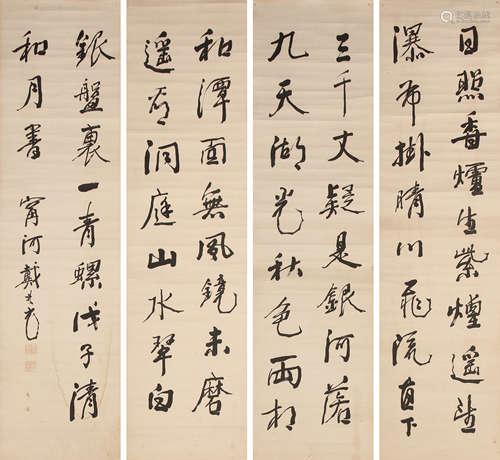 日照香爐生紫煙遥望
瀑布掛晴川飛流直下
三千丈疑是銀河落
九天湖光秋色兩相
和潭面無風鏡未磨
遥看洞庭山水翠白
銀盤裏一青螺戊子清
和月書
甯河戴